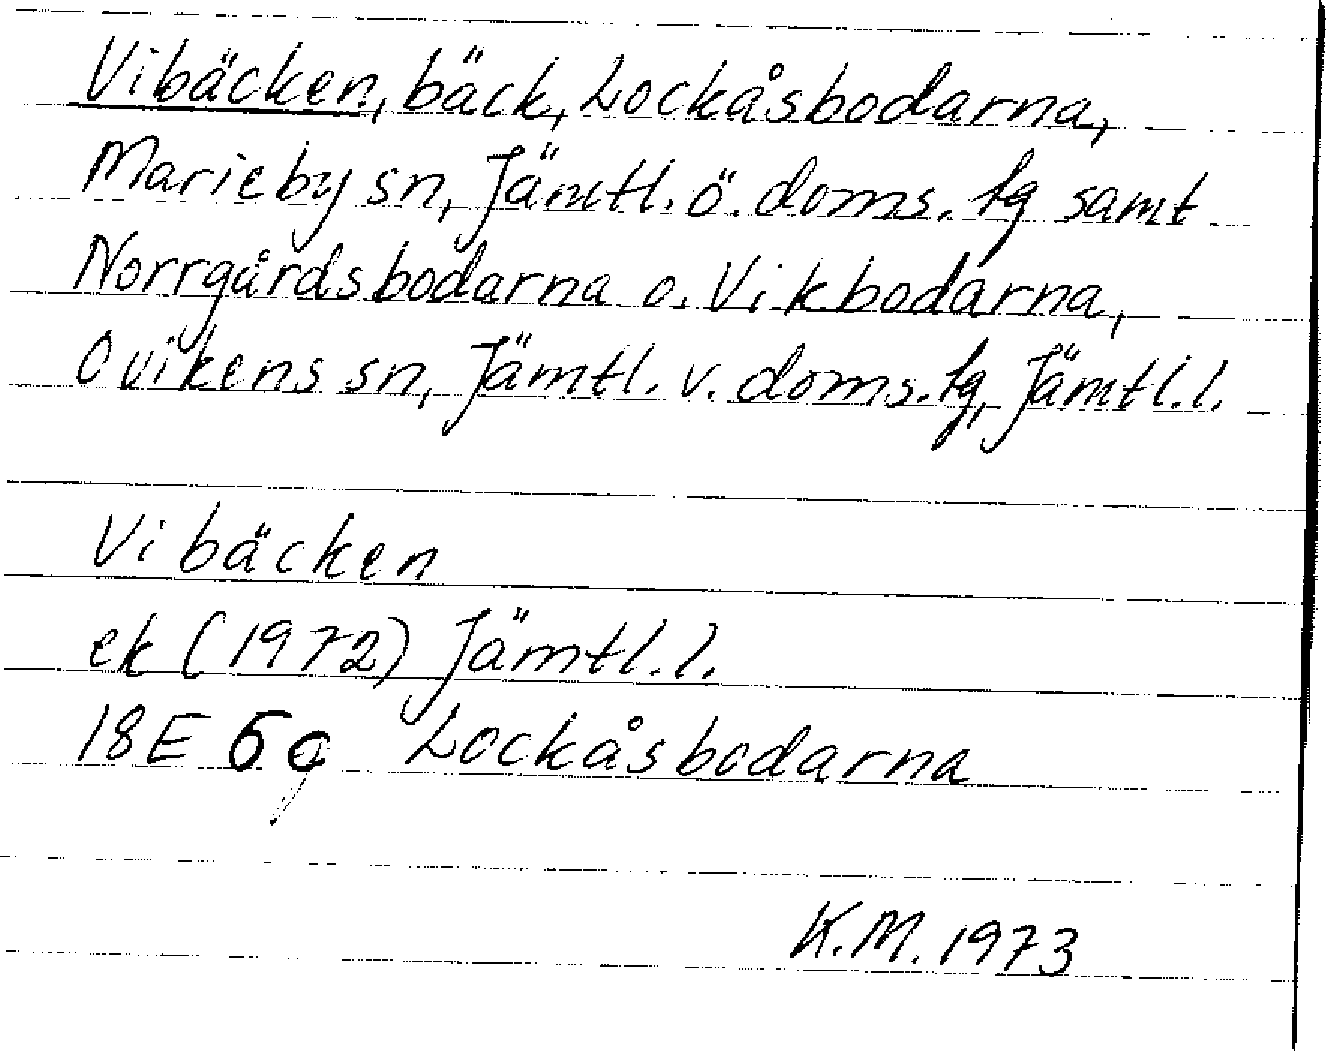 Vibäcken, bäck, Lockåsbodarna,
Marieby sn, Jämtl. ö. doms. tg samt
Norrgårdsbodarna o. Vikbodarna,
Ovikens sn, Jämtl. v. doms. tg, Jämtl. l.
Vibäcken
ek (1972) Jämtl. l.
18E Lockåsbodarna
K.M. 1973